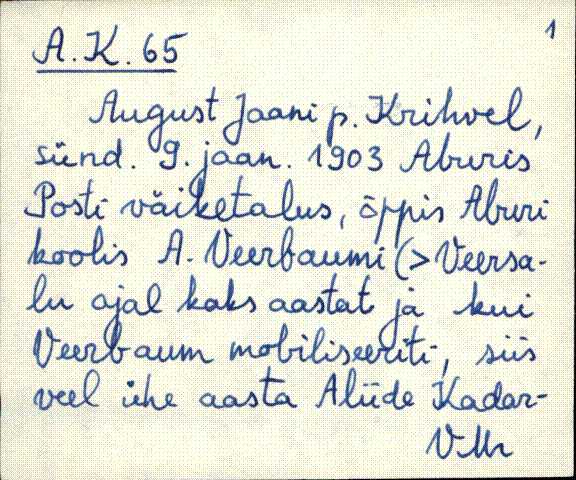 1
A.K. 65
August Jaani p. Krihvel,
sünd. 9. jaan. 1903 Aburis
Posti väiketalus, õppis Aburi
koolis A. Veerbaumi (> Veersa-
lu ajal kaks aastat ja kui
Veerbaum mobiliseeriti, siis
veel ühe aasta Aliide Kadar-
VMr